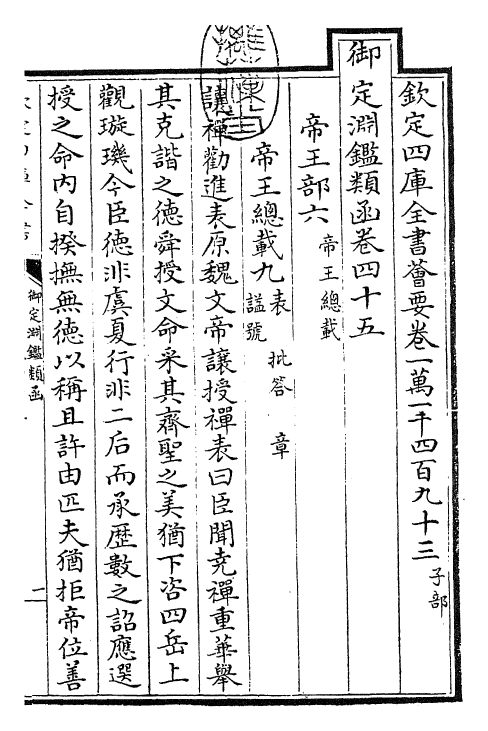 欽定四庫全書薈要卷一萬一千四百九十三 子部
御定淵鑑類函卷四十五
帝王部六 帝王總載
帝王總載九 表 批答 章 謚號
讓禪勸進表原魏文帝讓授禪表曰臣聞堯禪重華舉
其克諧之徳舜授文命采其齊聖之美猶下咨四岳上
觀璇璣今臣徳非虞夏行非二后而承歴數之詔應選
授之命内自揆撫無徳以稱且許由匹夫猶拒帝位善
御定淵鑑類函
二